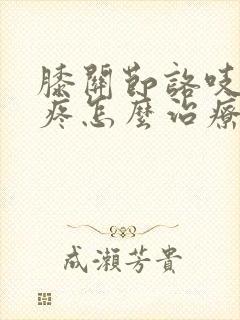 膝關節咯吱
疼怎麼治療
成瀨芳貴